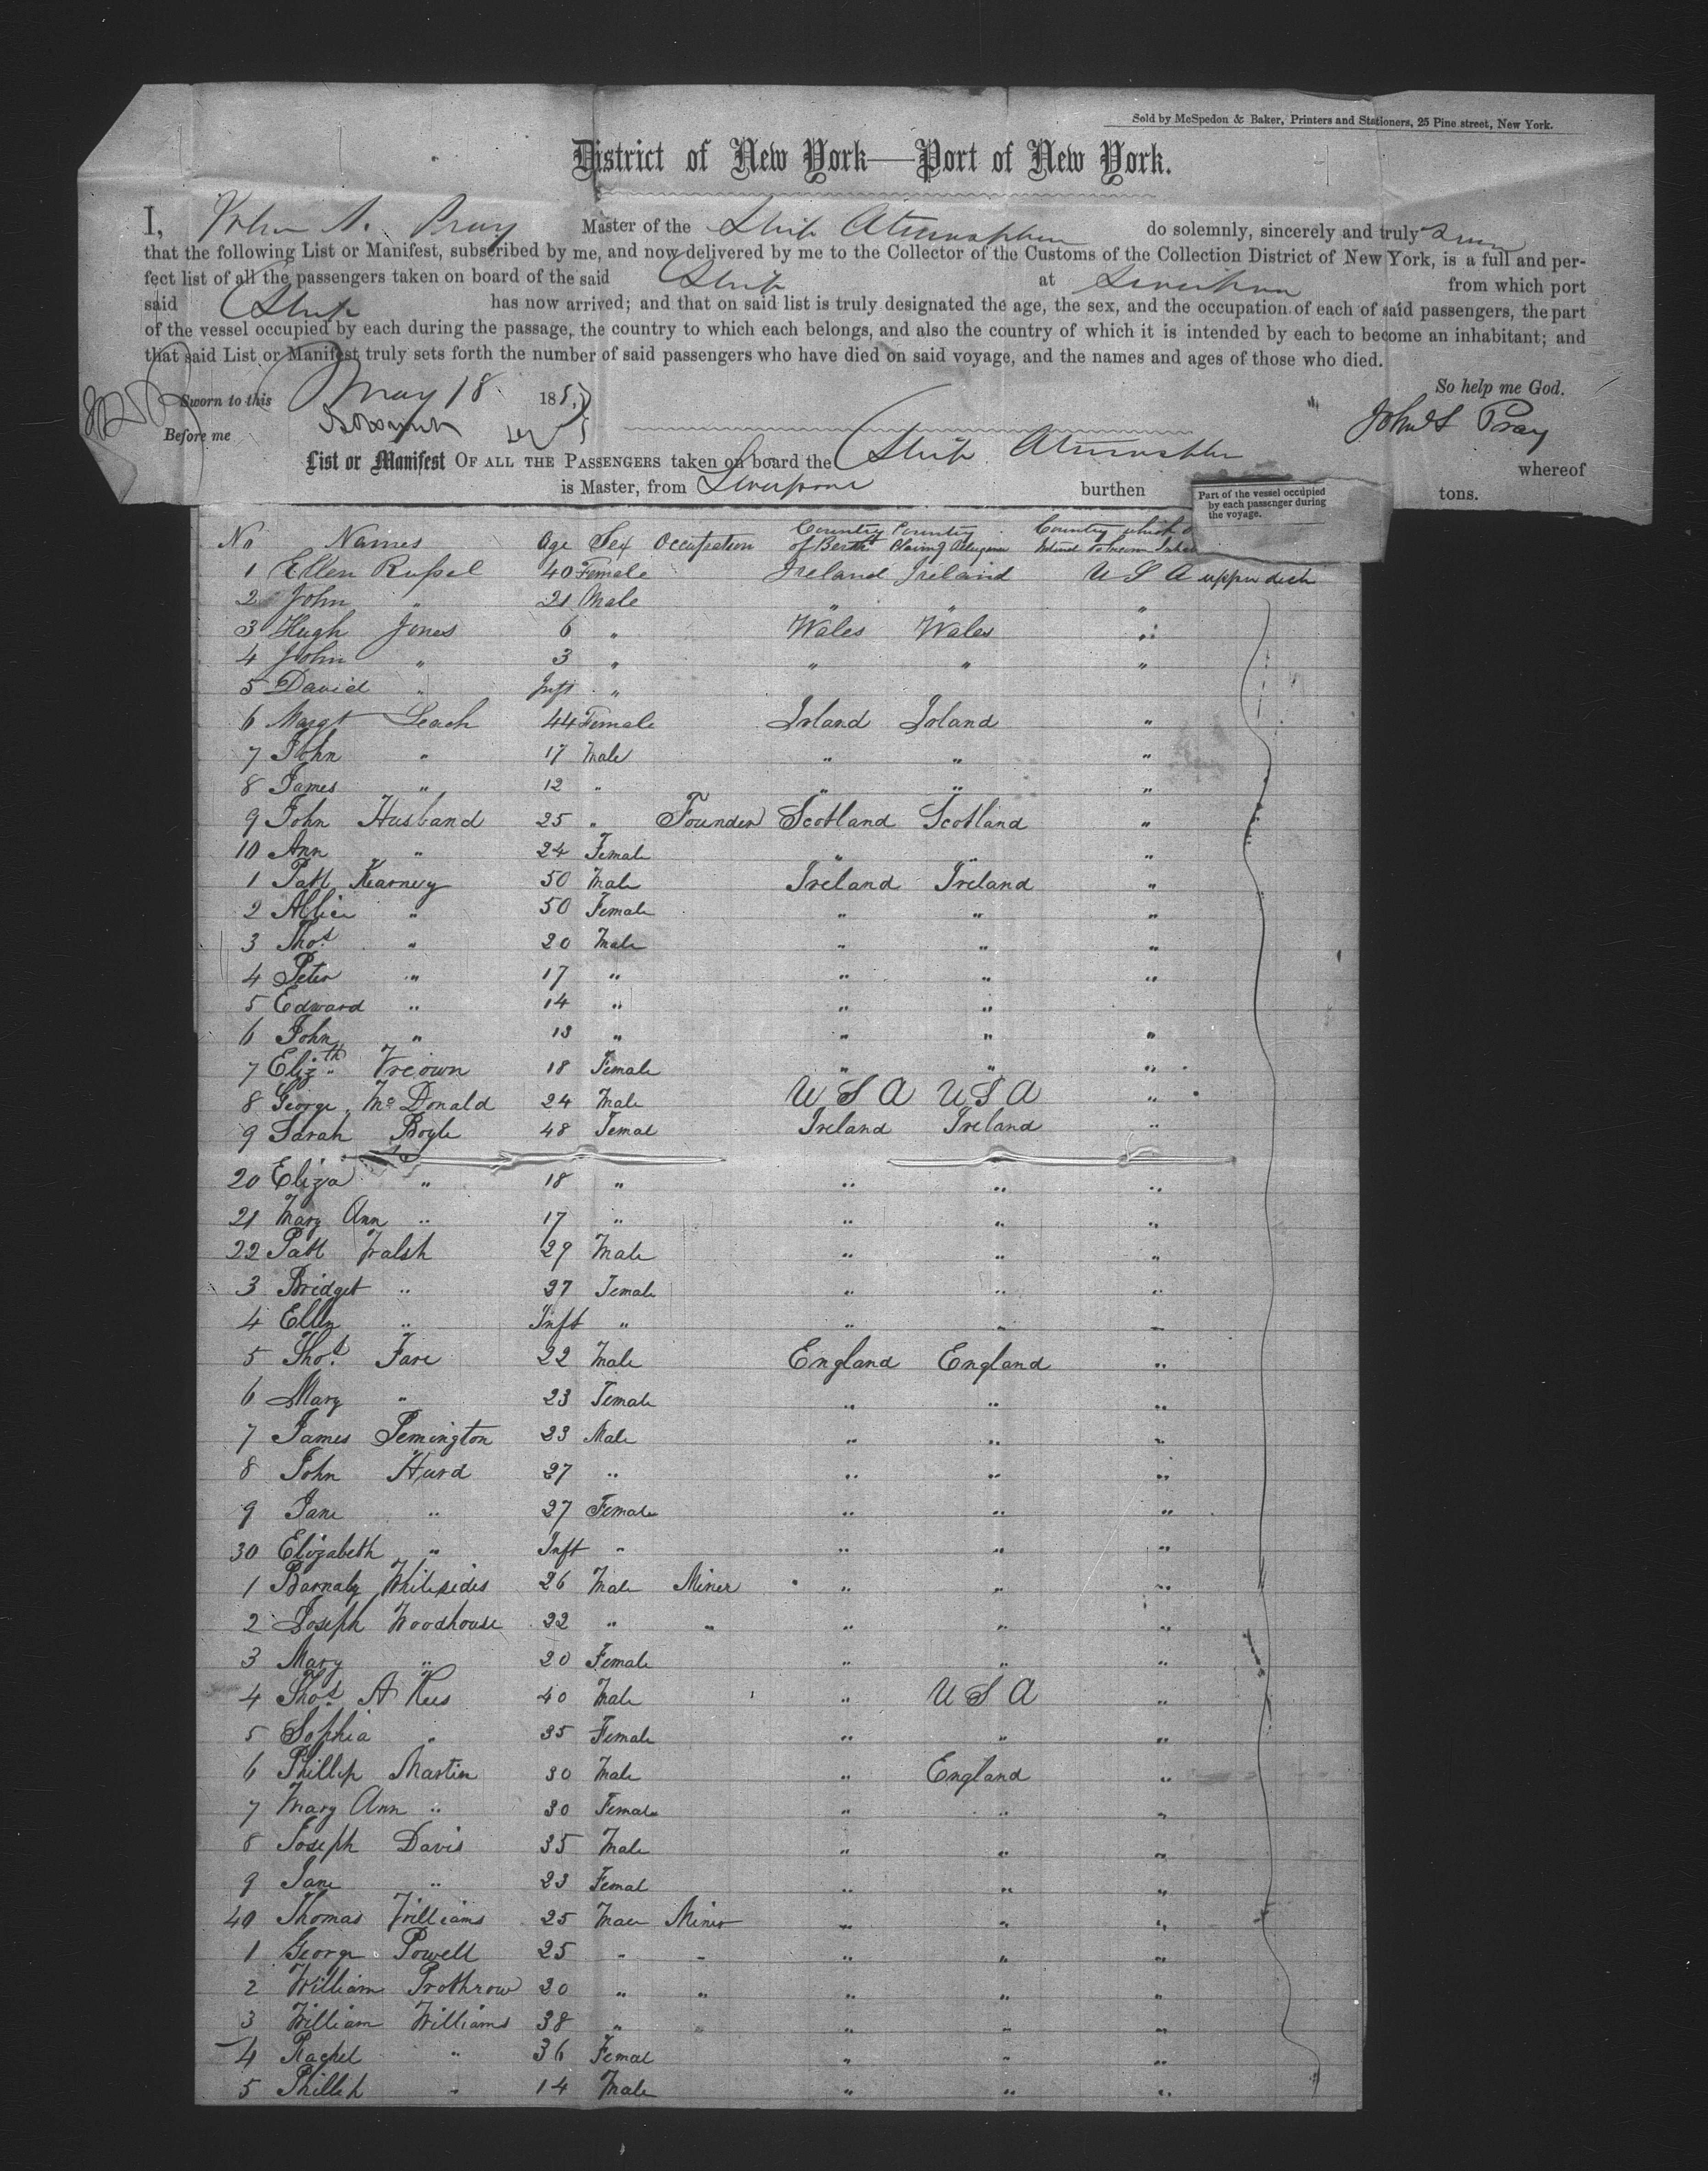 Sold by McSpedon & Baker, Printers and Stationers, 25 Pine street, New York.
District of New York—Port of New York.
I, John S. Pray Master of the Ship Atmosphere do solemnly, sincerely and truly swear
that the following List or Manifest, subscribed by me, and now delivered by me to the Collector of the Customs of the Collection District of New York, is a full and per-
fect list of all the passengers taken on board of the said Ship at Liverpool from which port
said Ship has now arrived; and that on said list is truly designated the age, the sex, and the occupation of each of said passengers, the part
of the vessel occupied by each during the passage, the country to which each belongs, and also the country of which it is intended by each to become an inhabitant; and
that said List or Manifest truly sets forth the number of said passengers who have died on said voyage, and the names and ages of those who died.
So help me God.
Sworn to this May 18 185
John S Pray
Before me
List or Manifest OF ALL THE PASSENGERS taken on board the Ship Atmosphere whereof
is Master, from Liverpool burthen tons.
Part of the vessel occupied
by each passenger during
the voyage.
No Names Age Sex Occupation Country of Berth Country Claimg Allegiance Country which Intend to becom Inhab
1 Ellen Russel 40 Female Ireland Ireland U S A upper deck
2 John " 21 Male " " "
3 Hugh Jones 6 " Wales Wales "
4 John " 3 " " " "
5 David " Inft "
6 Margt Leach 44 Female Irland Irland "
7 John " 17 Male " " "
8 James " 12 " " " "
9 John Husband 25 " Founder Scotland Scotland "
10 Ann " 24 Female " " "
1 Patt Kearney 50 Male Ireland Ireland "
2 Allice " 50 Female " " "
3 Thos " 20 Male " " "
4 Peter " 17 " " " "
5 Edward " 14 " " "
6 John " 13 " " " "
7 Elizth 18 Female " " "
8 George McDonald 24 Male U S A U S A "
9 Sarah Boyle 48 Femal Ireland Ireland "
20 Eliza " 18 " " " "
21 Mary Ann " 17 " " " "
22 Patt Walsh 29 Male " " "
3 Bridget " 27 Female " " "
4 Ellen " Inft " " " "
5 Thos Fare 22 Male England England "
6 Mary " 23 Female " " "
7 James Pemington 23 Male " " "
8 John Hurd 27 " " " "
9 Jane " 27 Female " " "
30 Elizabeth " Inft " " " "
1 Barnaby Whitesides 26 Male Miner " " "
2 Joseph Woodhouse 22 " " " " "
3 Mary " 20 Female " " "
4 Thos A Kees 40 Male " U S A "
5 Sophia " 35 Female " " "
6 Phillip Martin 30 Male " England "
7 Mary Ann " 30 Female " " "
8 Joseph Davis 35 Male " " "
9 Jane " 23 Femal " " "
40 Thomas Williams 25 Male Miner " " "
1 George Powell 25 " " " " "
2 William Prothrow 30 " " " " "
3 William Williams 38 " " " " "
4 Rachel " 36 Femal " " "
5 Phillip " 14 Male " " "